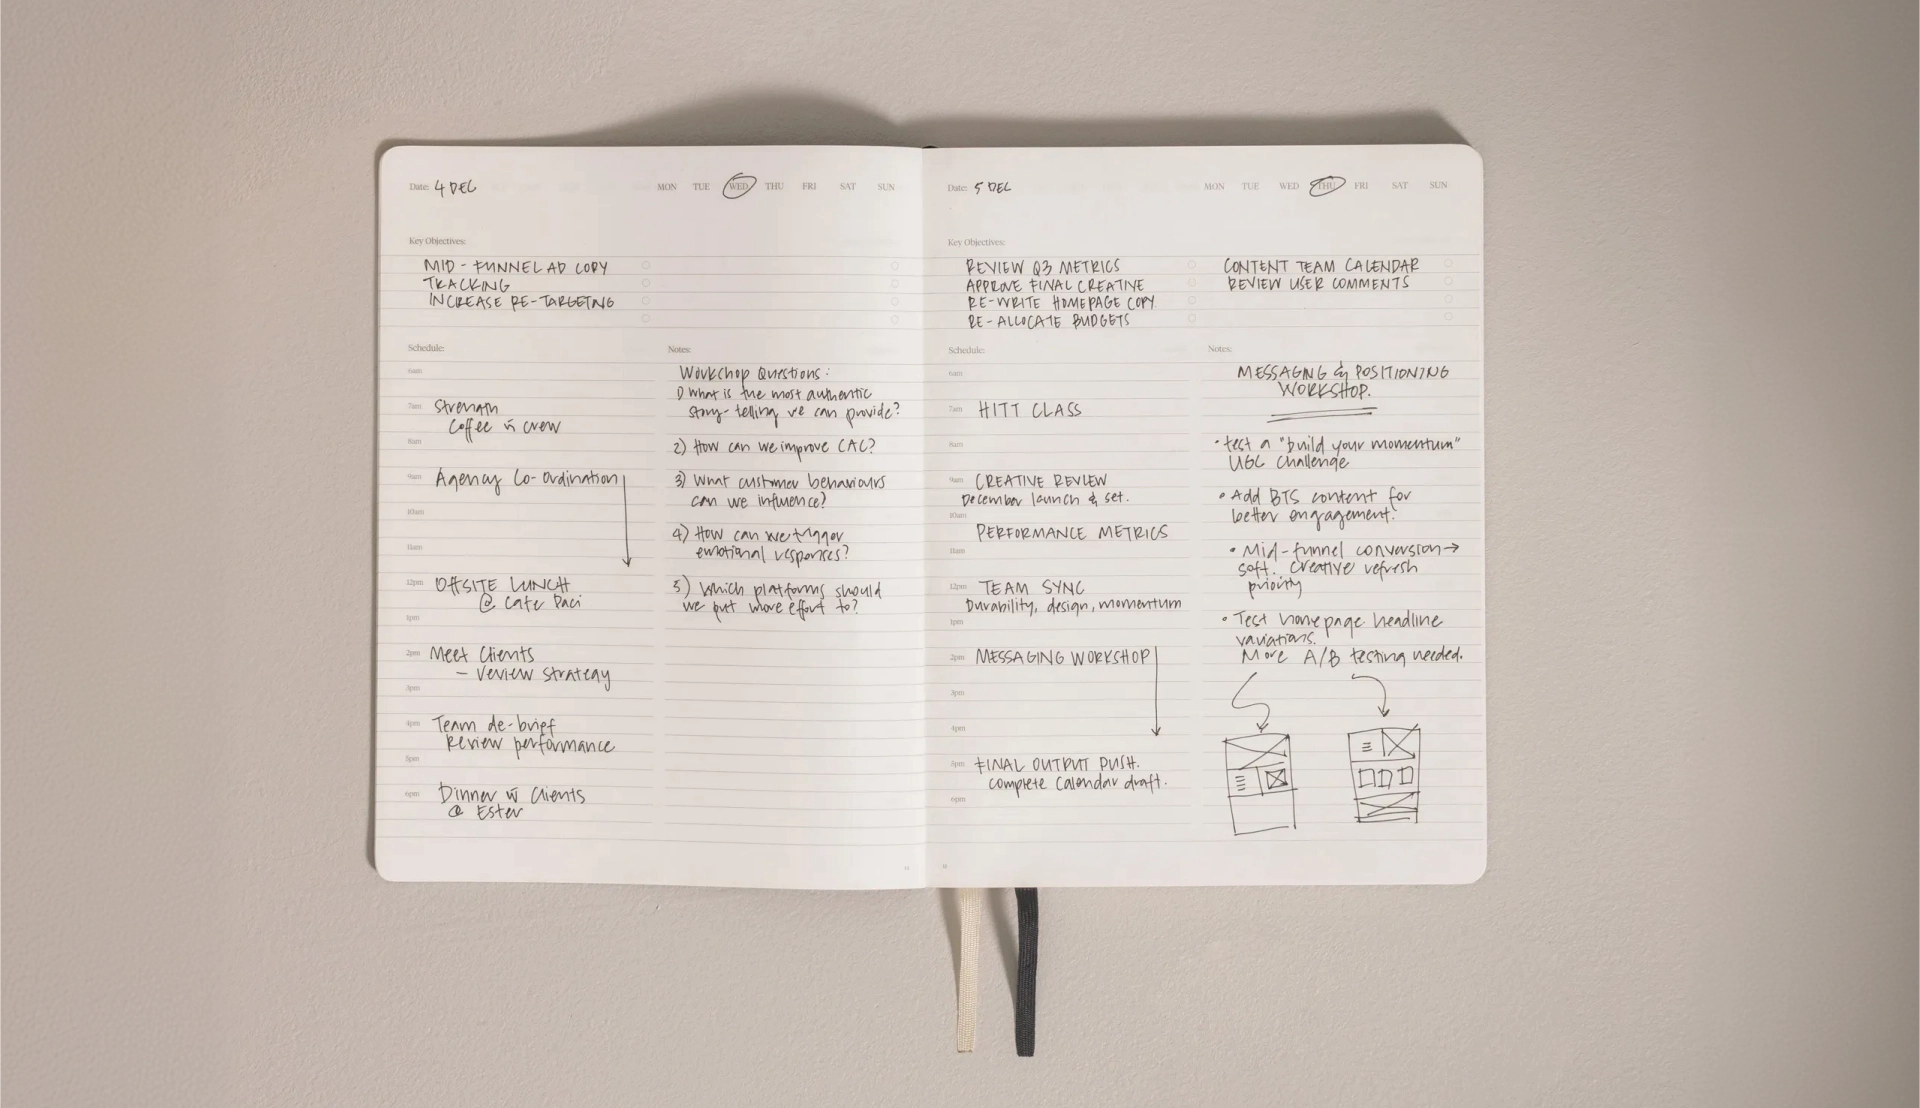 Date: 4 DEC
MON TUE WED THU FRI SAT SUN
Key Objectives:
MID - FUNNEL AD COPY
TRACKING
INCREASE RE-TARGETING
Schedule:
6am
7am Strength
Coffee w crew
8am
9am Agency Co-ordination
10am
11am
12pm OFFSITE LUNCH
@ Cafe Paci
1pm
2pm Meet Clients
- review strategy
3pm
4pm Team de-brief
Review performance
5pm
6pm Dinner w clients
@ Ester
Notes:
Workshop Questions:
1) What is the most authentic
story-telling we can provide?
2) How can we improve CAC?
3) What customer behaviours
can we influence?
4) How can we trigger
emotional responses?
5) Which platforms should
we put more effort to?
Date: 5 DEC
MON TUE WED THU FRI SAT SUN
Key Objectives:
REVIEW Q3 METRICS
APPROVE FINAL CREATIVE
RE-WRITE HOMEPAGE COPY
RE-ALLOCATE BUDGETS
CONTENT TEAM CALENDAR
REVIEW USER COMMENTS
Schedule:
6am
7am HITT CLASS
8am
9am CREATIVE REVIEW
December launch & set.
10am
PERFORMANCE METRICS
11am
12pm TEAM SYNC
Durability, design, momentum
1pm
2pm MESSAGING WORKSHOP
3pm
4pm
5pm FINAL OUTPUT PUSH.
complete Calendar draft.
6pm
Notes:
MESSAGING & POSITIONING
WORKSHOP.
• test a "build your momentum"
UGC challenge
• Add BTS content for
better engagement.
• Mid-funnel conversion →
soft. Creative refresh
priority
• Test homepage headline
variations.
More A/B testing needed.